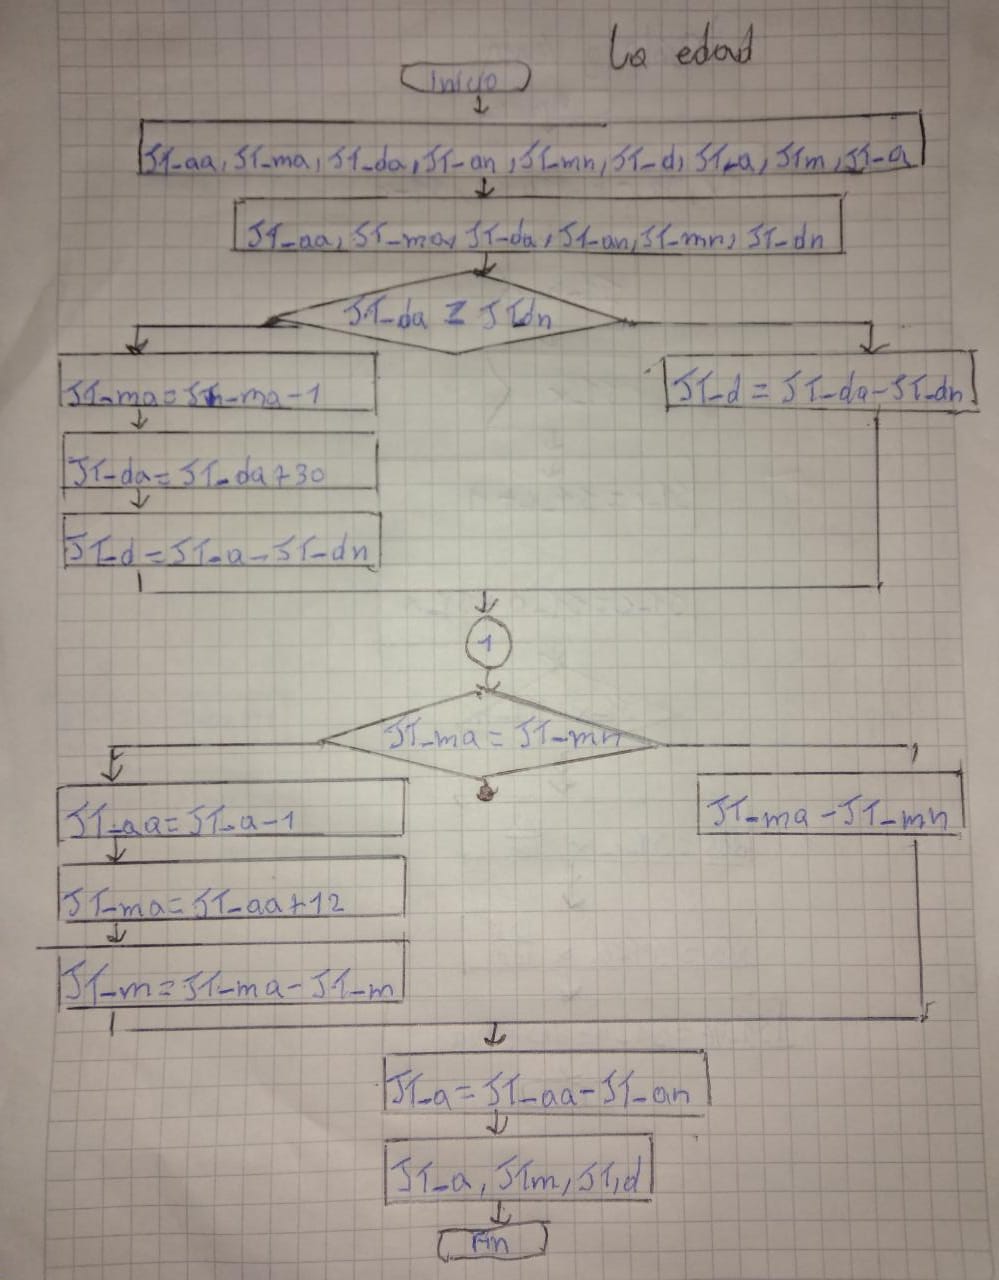 La edad
Inicio
JT-aa, JT-ma, JT-da, JT-an, JT-mn, JT-d, JT-a, JTm, JT-a
JT-aa, JT-ma, JT-da, JT-an, JT-mn, JT-dn
JT-da JT-dn
JT-ma = JT-ma-1
JT-d = JT-da-JT-dn
JT-da = JT-da+30
JT-d = JT-a-JT-dn
1
JT-ma = JT-mn
JT-aa = JT-a-1
JT-ma - JT-mn
JT-ma = JT-aa+12
JT-m = JT-ma-JT-m
JT-a = JT-aa-JT-an
JT-a, JTm, JT,d
Fin